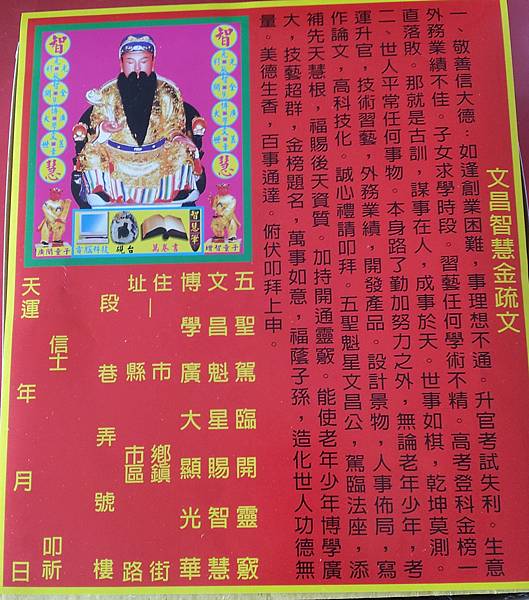 文昌智慧金疏文
一、敬善信大德:如逢創業困難,事理想不通。升官考試失利。生意
外務業績不佳。子女求學時段。習藝任何學術不精。高考登科金榜一
直落敗。那就是古訓,謀事在人,成事於天。世事如棋,乾坤莫測。
二、世人平常任何事物。本身路了勤加努力之外,無論老年少年,考
運升官,技術習藝,外務業績,開發產品。設計景物,人事佈局,寫
作論文,高科技化。誠心禮請叩拜。五聖魁星文昌公,駕臨法座,添
補先天慧根,福賜後天資質。加持開通靈竅。能使老年少年博學廣
大,技藝超群,金榜題名,萬事如意,福蔭子孫,造化世人功德無
量。美德生香,百事通達。俯伏叩拜上申。
智
慧
智
慧
電腦科技
硯台
萬卷書
智慧筆
廣聞童子
增智童子
五聖駕臨開靈竅
文昌魁星賜智慧
博學廣大顯光華
住 市 鄉鎮 街
址 縣 市區 路
段 巷 弄 號 樓
信士 叩祈
天運 年 月 日